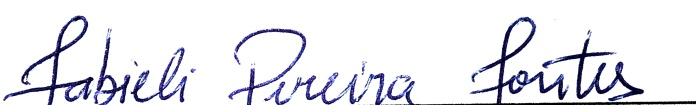 Fabieli Pereira Fontes